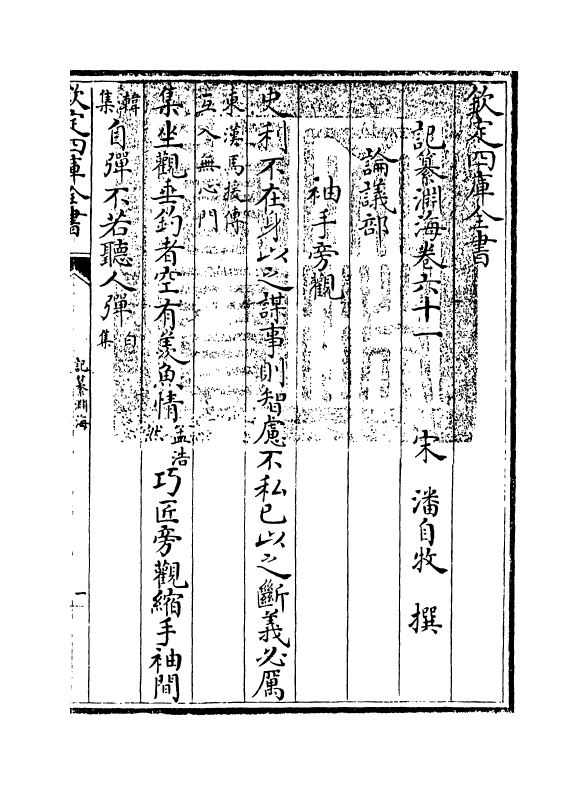 欽定四庫全書
記纂淵海卷六十一 宋 潘自牧 撰
論議部
袖手旁觀
史利不在身以之謀事則智慮不私已以之斷義必厲
東漢馬援傳
互入無心門
集坐觀垂釣者空有羨魚情孟浩然巧匠旁觀縮手袖間
韓集自彈不若聽人彈白集
欽定四庫全書 記纂淵海 一